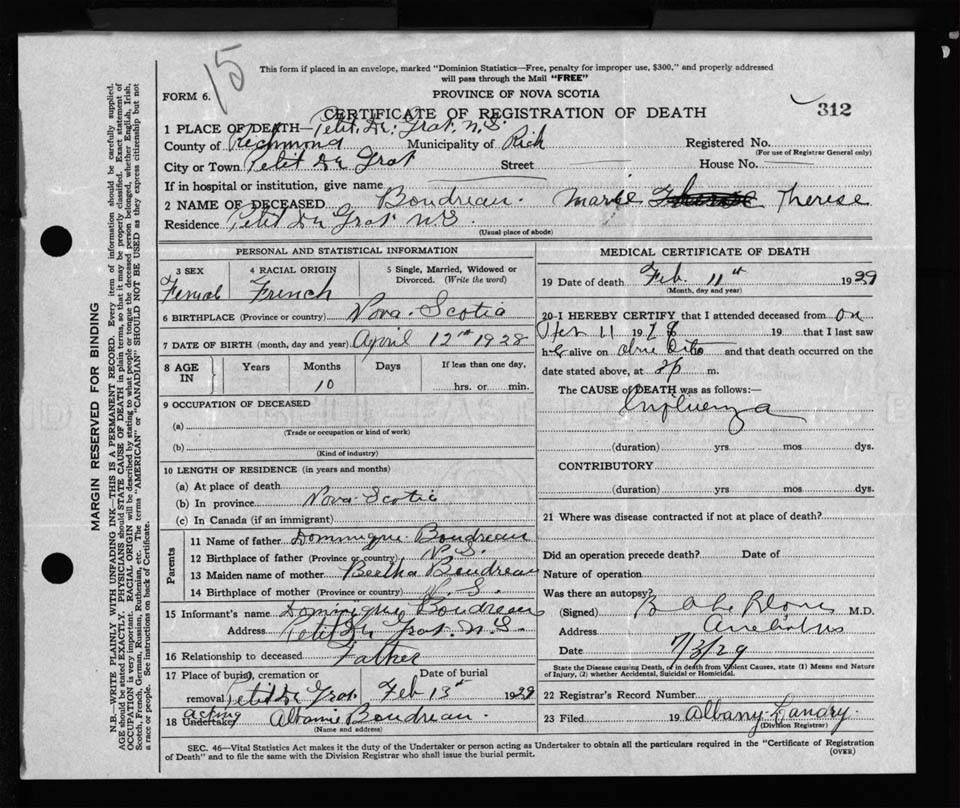 15
This form if placed in an envelope, marked "Dominion Statistics—Free, penalty for improper use, $300," and properly addressed
will pass through the Mail "FREE"
FORM 6.
PROVINCE OF NOVA SCOTIA
CERTIFICATE OF REGISTRATION OF DEATH
312
1 PLACE OF DEATH— Petit. De. Grat. N.S.
County of Richmond Municipality of Rich Registered No.
(For use of Registrar General only)
City or Town Petit De Grat Street House No.
If in hospital or institution, give name
2 NAME OF DECEASED Boudreau. Marie Therese
Residence Petit De Grat N.S
(Usual place of abode)
MARGIN RESERVED FOR BINDING
N.B.—WRITE PLAINLY WITH UNFADING INK—THIS IS A PERMANENT RECORD. Every item of information should be carefully supplied.
AGE should be stated EXACTLY. PHYSICIANS should STATE CAUSE OF DEATH in plain terms, so that it may be properly classified. Exact statement of
OCCUPATION is very important. RACIAL ORIGIN will be described by stating to what people or tongue the deceased person belonged, whether English, Irish,
Scotch, French, German, Russian, Ruthenian, etc. The terms "AMERICAN" or "CANADIAN" SHOULD NOT BE USED as they express citizenship but not
a race or people. See instructions on back of Certificate.
PERSONAL AND STATISTICAL INFORMATION
3 SEX 4 RACIAL ORIGIN 5 Single, Married, Widowed or
Divorced. (Write the word)
Femal French
6 BIRTHPLACE (Province or country) Nova. Scotia
7 DATE OF BIRTH (month, day and year) April 12th 1928
8 AGE IN Years Months Days If less than one day,
10 hrs. or min.
9 OCCUPATION OF DECEASED
(a)
(Trade or occupation or kind of work)
(b)
(Kind of industry)
10 LENGTH OF RESIDENCE (in years and months)
(a) At place of death
(b) In province Nova. Scotia
(c) In Canada (if an immigrant)
Parents
11 Name of father Dominique Boudreau
12 Birthplace of father (Province or country) N.S.
13 Maiden name of mother Beetha Boudreau
14 Birthplace of mother (Province or country) N.S.
15 Informant's name Dominique Boudreau
Address Petit De Grat. N.S.
16 Relationship to deceased Father
17 Place of burial, cremation or Date of burial
removal Petit De Grat. Feb 13th 1929
18 Acting Undertaker Albanie Boudreau.
(Name and address)
MEDICAL CERTIFICATE OF DEATH
19 Date of death Feb. 11th 1929
(Month, day and year)
20-I HEREBY CERTIFY that I attended deceased from on
Feb 11 19 19 that I last saw
h alive on and that death occurred on the
date stated above, at m.
The CAUSE of DEATH was as follows:—
Influenza
(duration) yrs. mos dys.
CONTRIBUTORY
(duration) yrs. mos. dys.
21 Where was disease contracted if not at place of death?
Did an operation precede death? Date of
Nature of operation
Was there an autopsy?
(Signed) M.D.
Address
Date 7/3/29
State the Disease causing Death, or in death from Violent Causes, state (1) Means and Nature
of Injury, (2) whether Accidental, Suicidal or Homicidal.
22 Registrar's Record Number
23 Filed 19 Albany Landry.
(Division Registrar)
SEC. 46—Vital Statistics Act makes it the duty of the Undertaker or person acting as Undertaker to obtain all the particulars required in the "Certificate of Registration
of Death" and to file the same with the Division Registrar who shall issue the burial permit.
(OVER)